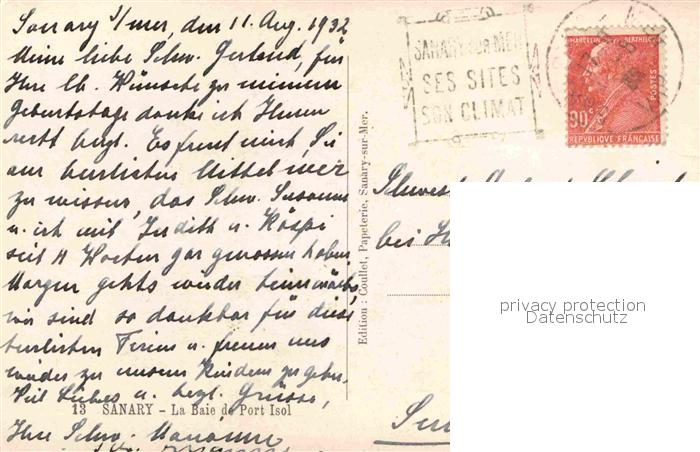 Sanary s/mer, den 11. Aug. 1932
Meine liebe Schw. Gertrud, für
Ihre lb. Wünsche zu meinem
Geburtstage danke ich Ihnen
recht hzgl. Es freut mich, Sie
am herrlichen Mittelmeer
zu wissen, das Schw. Susanne
u. ich mit Judith u. Röspi
seit 4 Wochen gar genossen haben.
Morgen gehts wieder heimwärts,
wir sind so dankbar für diese
herrlichen Ferien u. freuen uns
wieder zu unsern Kindern zu gehen.
Viel Liebes u. hzgl. Grüsse,
13 SANARY - La Baie de Port Isol
Ihre Schw. Marianne
Edition : Coullet, Papeterie, Sanary-sur-Mer.
SANARY-SUR-MER
SES SITES
SON CLIMAT
MARCELIN BERTHELOT
POSTES
90c
REPVBLIQVE FRANÇAISE
Schwest
bei
privacy protection
Datenschutz